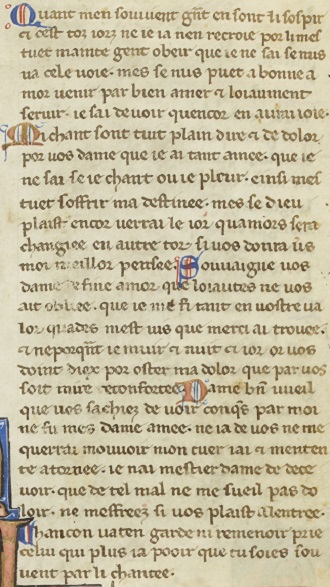 Quant men souvent gñt en sont li sospir
⁊ cest toz iorz ne ie ia nen recroie por li mes
tuet mainte gent obeir que ie ne sai se nus
va cele voie. mes se nus puet a bonne a
mor venir par bien amer ⁊ loiaument
servir. ie sai de voir quencor en aurai ioie.
Mi chant sont tuit plain dire ⁊ de dolor
por vos dame que ie ai tant amee. que ie
ne sai se ie chant ou ie plour. einsi mes
tuet soffrir ma destinee. mes se dieu
plaist encor verrai le ior quamors sera
changiee en autre tor si vos donra vs
moi meillor pensee. Souvaigne vos
dame de fine amor que loiautez ne vos
ait obliee. que ie me fi tant en vostre va
lor quades mest vis que merci ai trovee.
⁊ neporq̃nt ie muir ⁊ nuit ⁊ ior or vos
doint diex por oster ma dolor que par vos
soit mire reconfortee. Dame bñ vueil
que vos sachiez de voir conq̃s par moi
ne fu mes dame amee. ne ia de vos ne me
querrai mouvoir mon cuer iai ⁊ menten
te atornee. ie nai mestier dame de dece
voir. que de tel mal ne me sueil pas do
loir. ne mesfreez si vos plaist alentree.
Chancon va ten garde ni remenoir prie
celui qui plus ia pooir que tu soies sou
vent par li chantee.